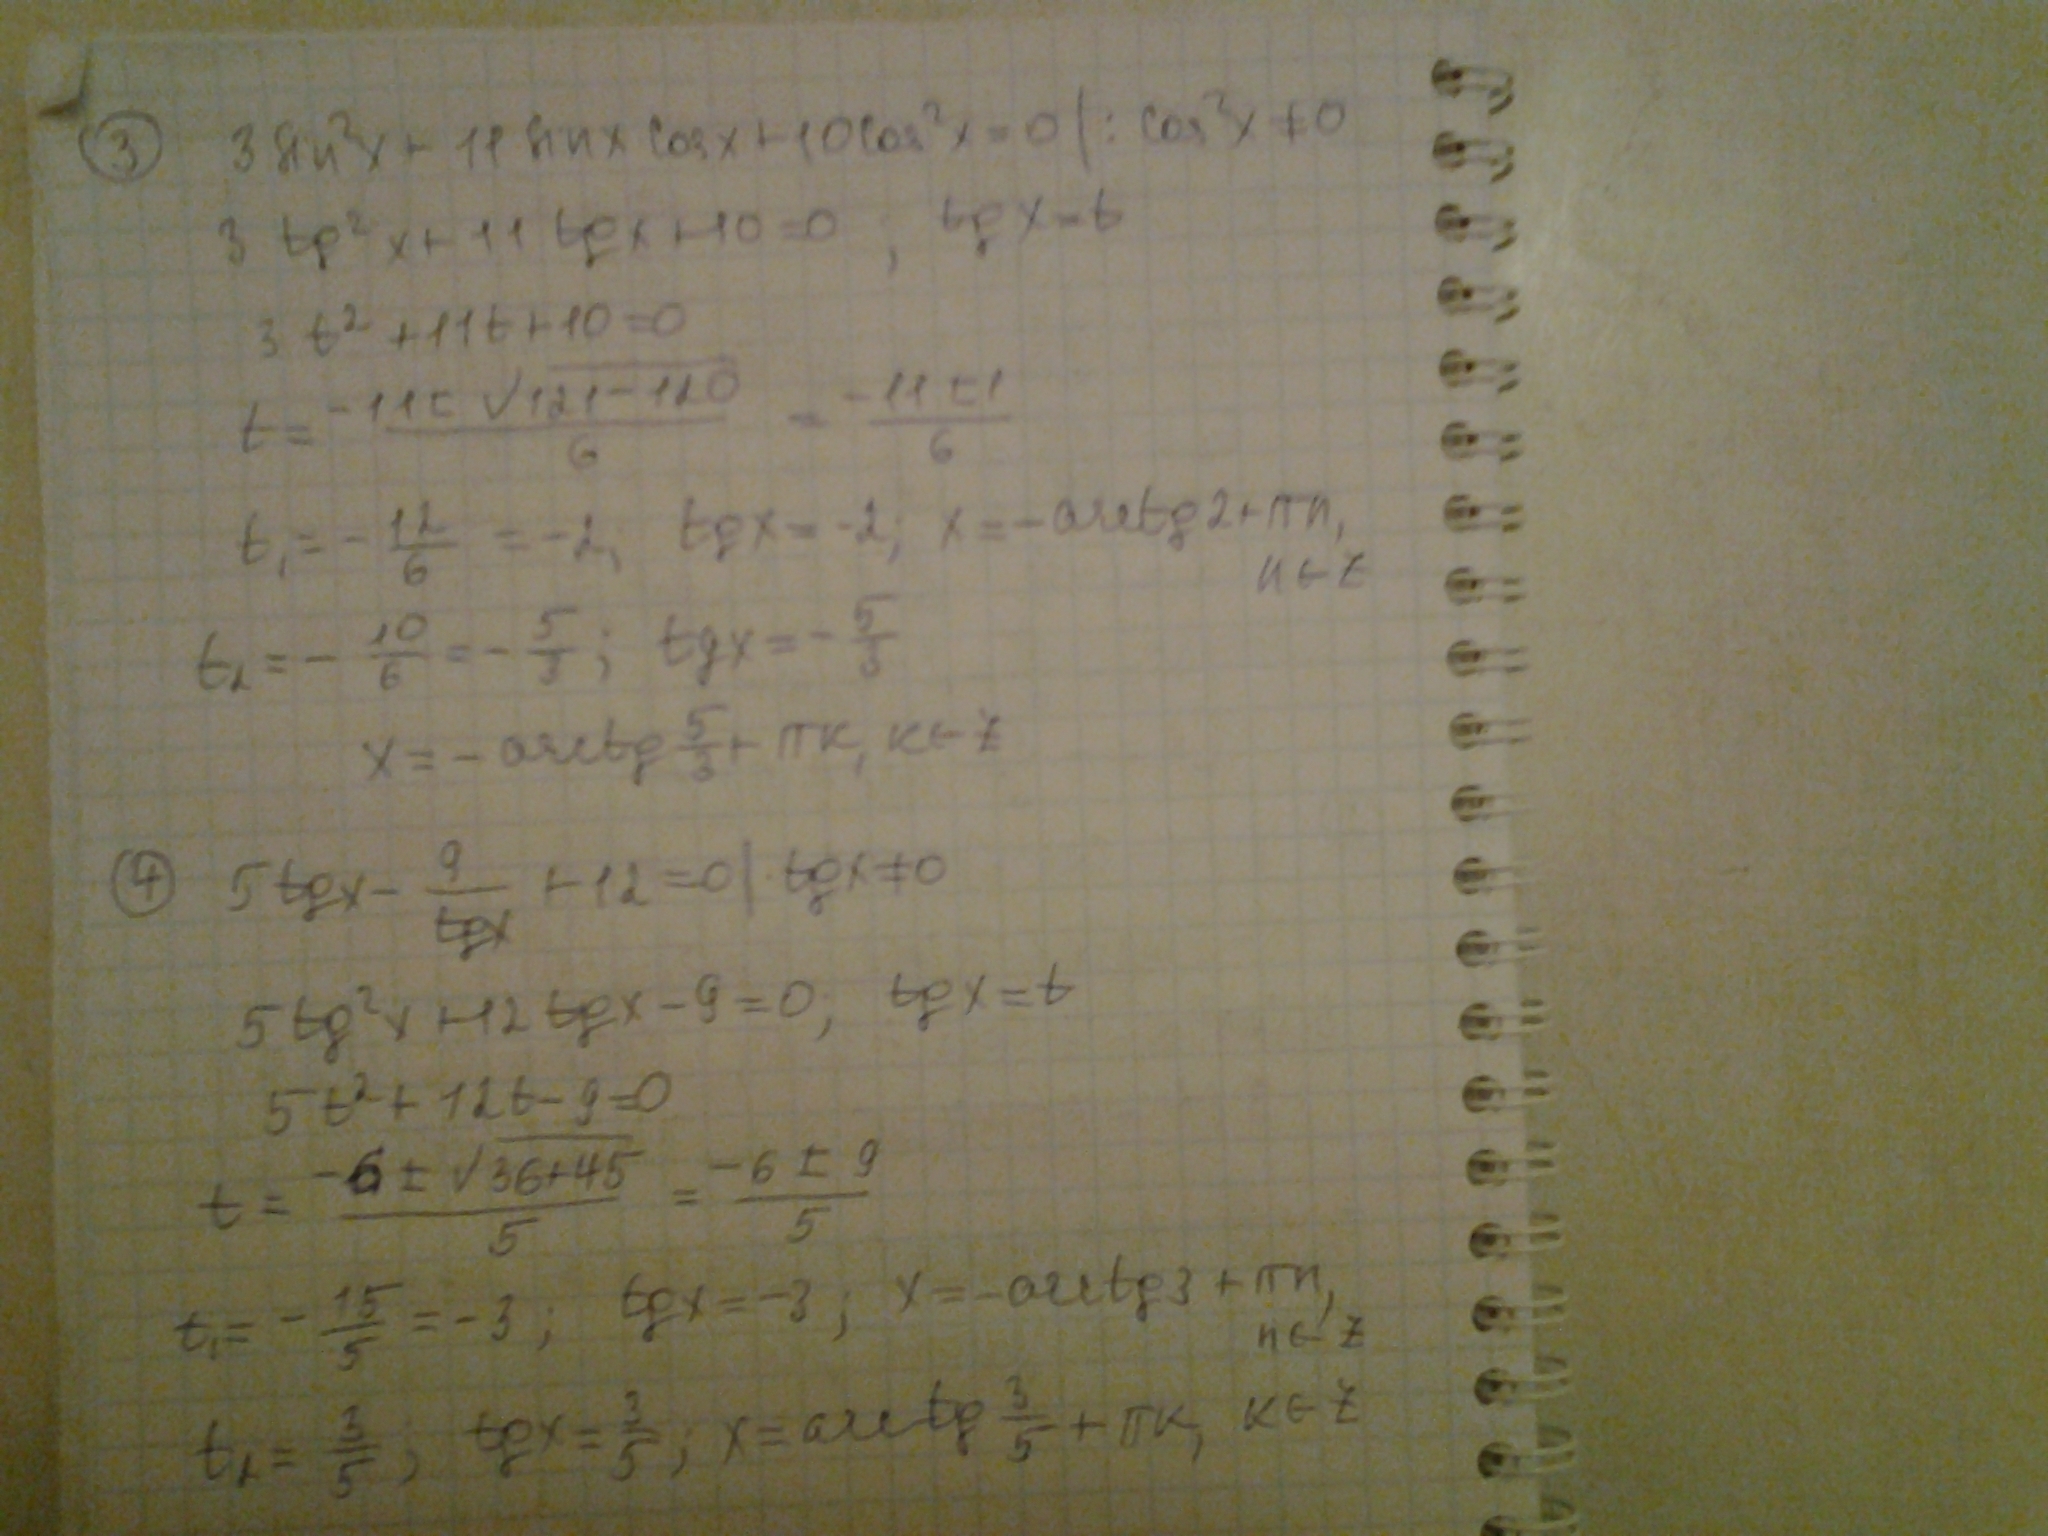 ③ 3 sin²x + 11 sinx cosx + 10 cos²x = 0 | : cos²x ≠ 0
3 tg²x + 11 tgx + 10 = 0 ; tgx = t
3 t² + 11t + 10 = 0
t = (-11 ± √(121 - 120))/6 = (-11 ± 1)/6
t₁ = -12/6 = -2, tgx = -2; x = -arctg 2 + πn,
n ∈ Z
t₂ = -10/6 = -5/3 ; tgx = -5/3
x = -arctg 5/3 + πk, k ∈ Z
④ 5 tgx - 9/tgx + 12 = 0 | · tgx ≠ 0
5 tg²x + 12 tgx - 9 = 0; tgx = t
5t² + 12t - 9 = 0
t = (-6 ± √(36 + 45))/5 = (-6 ± 9)/5
t₁ = -15/5 = -3 ; tgx = -3 ; x = -arctg 3 + πn,
n ∈ Z
t₂ = 3/5 ; tgx = 3/5 ; x = arctg 3/5 + πk, k ∈ Z